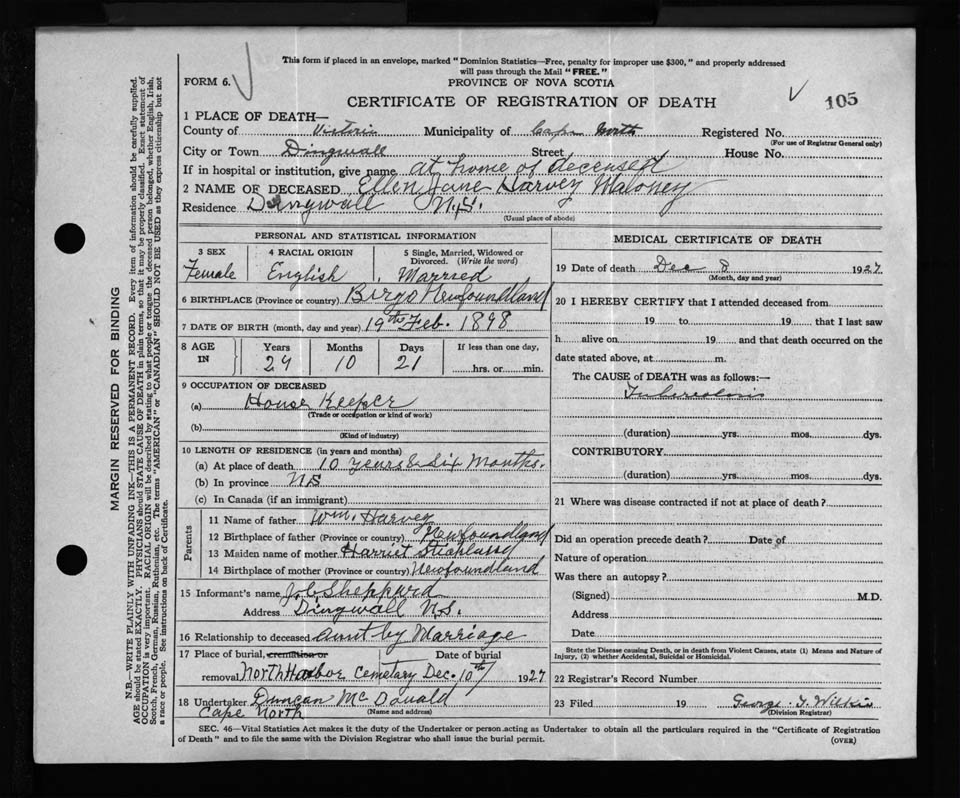 This form if placed in an envelope, marked "Dominion Statistics—Free, penalty for improper use $300," and properly addressed
will pass through the Mail "FREE."
FORM 6.
PROVINCE OF NOVA SCOTIA
CERTIFICATE OF REGISTRATION OF DEATH
105
1 PLACE OF DEATH—
County of Victoria Municipality of Cape North Registered No.
(For use of Registrar General only)
City or Town Dingwall Street House No.
If in hospital or institution, give name at home of deceased
2 NAME OF DECEASED Ellen Jane Harvey Maloney
Residence Dingwall N.S.
(Usual place of abode)
PERSONAL AND STATISTICAL INFORMATION
3 SEX 4 RACIAL ORIGIN 5 Single, Married, Widowed or Divorced. (Write the word)
Female English Married
6 BIRTHPLACE (Province or country) Birgo Newfoundland
7 DATE OF BIRTH (month, day and year) 19th Feb. 1898
8 AGE IN Years Months Days If less than one day,
29 10 21 hrs. or min.
9 OCCUPATION OF DECEASED
(a) House Keeper
(Trade or occupation or kind of work)
(b)
(Kind of industry)
10 LENGTH OF RESIDENCE (in years and months)
(a) At place of death 10 years & Six Months.
(b) In province NS
(c) In Canada (if an immigrant)
Parents
11 Name of father Wm. Harvey
12 Birthplace of father (Province or country) Newfoundland
13 Maiden name of mother Harriet
14 Birthplace of mother (Province or country) Newfoundland
15 Informant's name J.C. Sheppard
Address Dingwall N.S.
16 Relationship to deceased aunt by Marriage
17 Place of burial, cremation or removal Date of burial
North Harbor Cemetary Dec. 10th 1927
18 Undertaker Duncan McDonald
Cape North (Name and address)
MEDICAL CERTIFICATE OF DEATH
19 Date of death Dec 8 1927
(Month, day and year)
20 I HEREBY CERTIFY that I attended deceased from
19 to 19 that I last saw
h alive on 19 and that death occurred on the
date stated above, at m.
The CAUSE of DEATH was as follows:—
Tuberculosis
(duration) yrs. mos. dys.
CONTRIBUTORY
(duration) yrs. mos. dys.
21 Where was disease contracted if not at place of death?
Did an operation precede death? Date of
Nature of operation
Was there an autopsy?
(Signed) M.D.
Address
Date
State the Disease causing Death, or in death from Violent Causes, state (1) Means and Nature of
Injury, (2) whether Accidental, Suicidal or Homicidal.
22 Registrar's Record Number
23 Filed 19 George T. Wilkie
(Division Registrar)
SEC. 46—Vital Statistics Act makes it the duty of the Undertaker or person acting as Undertaker to obtain all the particulars required in the "Certificate of Registration
of Death" and to file the same with the Division Registrar who shall issue the burial permit. (OVER)
MARGIN RESERVED FOR BINDING
N.B.—WRITE PLAINLY WITH UNFADING INK—THIS IS A PERMANENT RECORD. Every item of information should be carefully supplied.
AGE should be stated EXACTLY. PHYSICIANS should STATE CAUSE OF DEATH in plain terms, so that it may be properly classified. Exact statement of
OCCUPATION is very important. RACIAL ORIGIN will be described by stating to what people or tongue the deceased person belonged, whether English, Irish,
Scotch, French, German, Russian, Ruthenian, etc. The terms "AMERICAN" or "CANADIAN" SHOULD NOT BE USED as they express citizenship but not
a race or people. See instructions on back of Certificate.